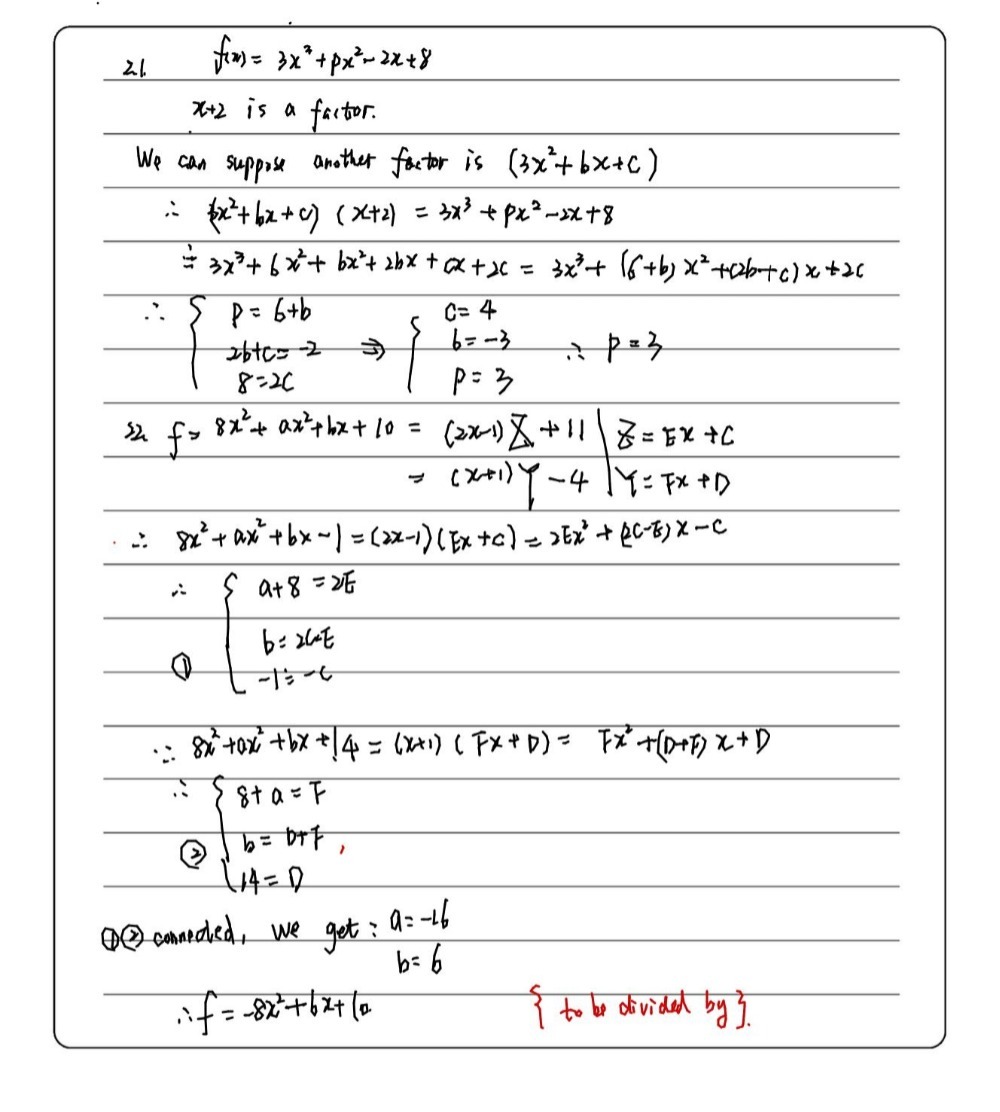 21. f(x) = 3x³ + px² - 2x + 8
x+2 is a factor.
We can suppose another factor is (3x² + bx + c)
∴ (3x² + bx + c) (x+2) = 3x³ + px² - 2x + 8
= 3x³ + 6x² + bx² + 2bx + cx + 2c = 3x³ + (6+b) x² + (2b+c) x + 2c
∴ { p = 6+b
2b+c = -2
8 = 2c
⇒ { c = 4
b = -3
p = 3
∴ p = 3
22 f = 8x² + ax² + bx + 10 = (2x-1) Z + 11 | Z = Ex + C
= (x+1) Y - 4 | Y = Fx + D
∴ 8x² + ax² + bx - 1 = (2x-1) (Ex + C) = 2Ex² + (2C-E) x - C
∴ { a+8 = 2E
b = 2C-E
① -1 = -C
∵ 8x² + ax² + bx + 14 = (x+1) ( Fx + D) = Fx² + (D+F) x + D
∴ { 8 + a = F
② b = D+F ,
14 = D
①② connected, we get : a = -16
b = 6
∴ f = -8x² + 6x + 10 { to be divided by }.